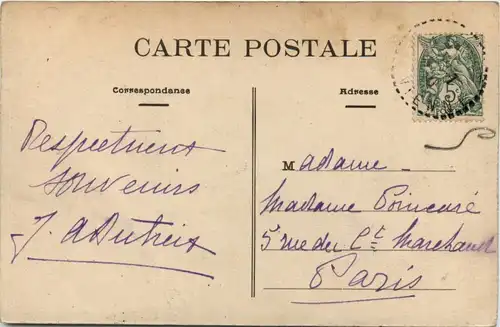 CARTE POSTALE
Correspondance
Adresse
Respectueux
souvenirs
Madame
Madame Poincaré
5 rue du Ct Marchand
Paris